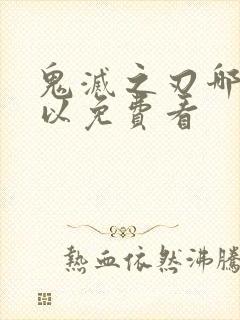 鬼滅之刃哪
以免費看
熱血依然沸騰